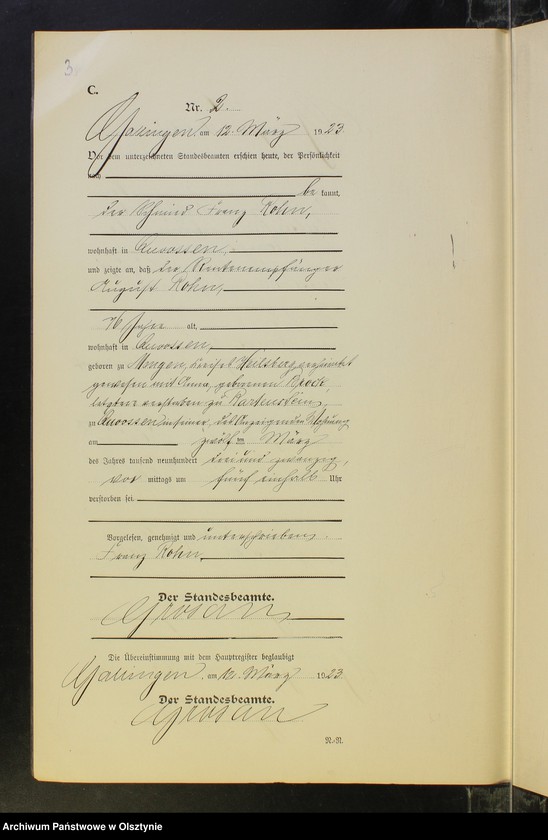 3.
C.
Nr. 2.
Gallingen am 12. März 1923
Vor dem unterzeichneten Standesbeamten erschien heute, der Persönlichkeit
nach
be kannt,
der Schmied Franz Kohn,
wohnhaft in Quoossen,
und zeigte an, daß der Rentenempfänger
August Kohn,
76 Jahre alt,
wohnhaft in Quoossen,
geboren zu Mengen, Kreises Heilsberg, verheiratet
gewesen mit Anna, geborenen
letztere verstorben zu Bartenstein,
zu Quoossen in seiner, des Anzeigenden Wohnung
am zwölften März
des Jahres tausend neunhundert drei und zwanzig,
vor mittags um fünf einhalb Uhr
verstorben sei.
Vorgelesen, genehmigt und unterschrieben.
Franz Kohn.
Der Standesbeamte.
Die Übereinstimmung mit dem Hauptregister beglaubigt
Gallingen, am 12. März 1923
Der Standesbeamte.
N.-R.
Archiwum Państwowe w Olsztynie